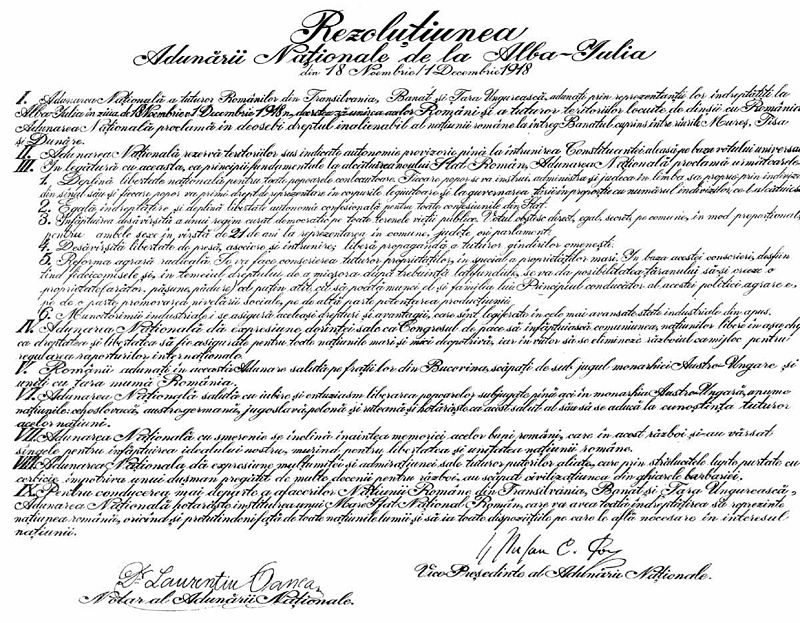 Rezoluțiunea
Adunării Naționale de la Alba-Iulia
din 18 Noembrie/1 Decembrie 1918
I. Adunarea Națională a tuturor Românilor din Transilvania, Banat și Țara Ungurească, adunați prin reprezentanții lor îndreptățiți la
Alba-Iulia în ziua de 18 Noembrie/1 Decembrie 1918, decretează unirea acelor Români și a tuturor teritoriilor locuite de dînșii cu România.
Adunarea Națională proclamă în deosebi dreptul inalienabil al națiunii române la întreg Banatul cuprins între rîurile Mureș, Tisa
și Dunăre.
II. Adunarea Națională rezervă teritoriilor sus indicate autonomie provizorie pînă la întrunirea Constituantei aleasă pe baza votului universal
III. În legătură cu aceasta, ca principii fundamentale la alcătuirea noului Stat Român, Adunarea Națională proclamă următoarele:
1. Deplină libertate națională pentru toate popoarele conlocuitoare. Fiecare popor se va instrui, administra și judeca în limba sa proprie prin indivizi
din sînul său și fiecare popor va primi drept de reprezentare în corpurile legiuitoare și la guvernarea țării în proporție cu numărul indivizilor ce-l alcătuiesc
2. Egală îndreptățire și deplină libertate autonomă confesională pentru toate confesiunile din Stat.
3. Înfăptuirea desăvîrșită a unui regim curat democratic pe toate terenele vieții publice. Votul obștesc, direct, egal, secret, pe comune, în mod proporțional,
pentru ambele sexe în vîrstă de 21 de ani la reprezentarea în comune, județe ori parlament.
4. Desăvîrșită libertate de presă, asociere și întrunire; liberă propagandă a tuturor gîndirilor omenești.
5. Reforma agrară radicală. Se va face conscrierea tuturor proprietăților, în special a proprietăților mari. În baza acestei conscrieri, desfiin
țînd fideicomisele și, în temeiul dreptului de a micșora după trebuință latifundiile, se va da posibilitatea țăranului să-și creeze o
proprietate (arător, pășune, pădure) cel puțin atît, cît să poată munci el și familia lui. Principiul conducător al acestei politici agrare e,
pe de o parte promovarea nivelării sociale, pe de altă parte potențarea producțiunii.
6. Muncitorimii industriale i se asigură aceleași drepturi și avantagii, care sînt legiferate în cele mai avansate state industriale din apus.
IV. Adunarea Națională dă expresiune dorinței sale ca Congresul de pace să înfăptuiască comuniunea națiunilor libere în așa chip
ca dreptatea și libertatea să fie asigurate pentru toate națiunile mari și mici deopotrivă, iar în viitor să se elimineze războiul ca mijloc pentru
regularea raporturilor internaționale.
V. Românii adunați în această Adunare salută pe frații lor din Bucovina, scăpați de sub jugul monarhiei Austro-Ungare și
uniți cu țara mumă România.
VI. Adunarea Națională salută cu iubire și entuziasm liberarea popoarelor subjugate pînă aci în monarhia Austro-Ungară, anume
națiunile: cehoslovacă, austrogermană, jugoslavă, polonă și ruteană și hotărăște ca acest salut al său să se aducă la cunoștința tuturor
acelor națiuni.
VII. Adunarea Națională cu smerenie se înclină înaintea memoriei acelor buni români, care în acest război și-au vărsat
sîngele pentru înfăptuirea idealului nostru, murind pentru libertatea și unitatea națiunii române.
VIII. Adunarea Națională dă expresiune mulțumitei și admirațiunei sale tuturor puterilor aliate, care prin strălucitele lupte purtate cu
cerbicie împotriva unui dușman pregătit de multe decenii pentru război, au scăpat civilizațiunea din ghiarele barbariei.
IX. Pentru conducerea mai departe a afacerilor Națiunii Române din Transilvania, Banat și Țara Ungurească,
Adunarea Națională hotărăște instituirea unui Mare Sfat Național Român, care va avea toată îndreptățirea să reprezinte
națiunea română, oricînd și pretutindeni față de toate națiunile lumii și să ia toate dispozițiile pe care le află necesare în interesul
națiunii.
Dr Laurențiu Oanea
Notar al Adunării Naționale.
Ștefan C. Pop
Vice Președinte al Adunării Naționale.